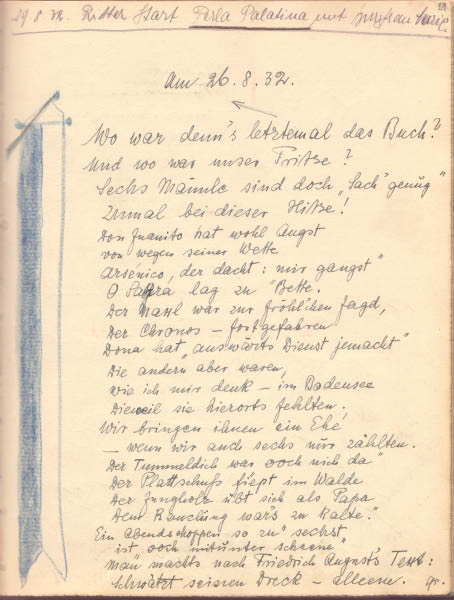 19.8.32. Ritter Start Perla Palatina mit
Am 26.8.32.
Wo war denn's letztemal das Buch?
Und wo war unser Fritze?
Sechs Männle sind doch „Sach' genug"
Zumal bei dieser Hitze!
Don Juanito hat wohl Angst
von wegen seiner Wette
Arsénico, der dacht: mir gangst"
O Sagra lag zu Bette.
Der Nasl war zur fröhlichen Jagd,
Der Chronos – fortgefahren
Dona hat „auswärts Dienst jemacht"
Die andern aber waren,
wie ich mir denk – im Bodensee
Dieweil sie hierorts fehlten.
Wir bringen ihnen ein Ehé
– wenn wir auch sechs nur zählten.
Der Tummeldich war ooch nich da"
Der Plattschuss fiept im Walde
Der Jungholz übt sich als Papa
Dem Rauchung war's zu kalte."
Ein Abendschoppen so zu sechst
ist „ooch mitunter scheene"
Man machts nach Friedrich August's Text:
Dreck – alleene. gr.